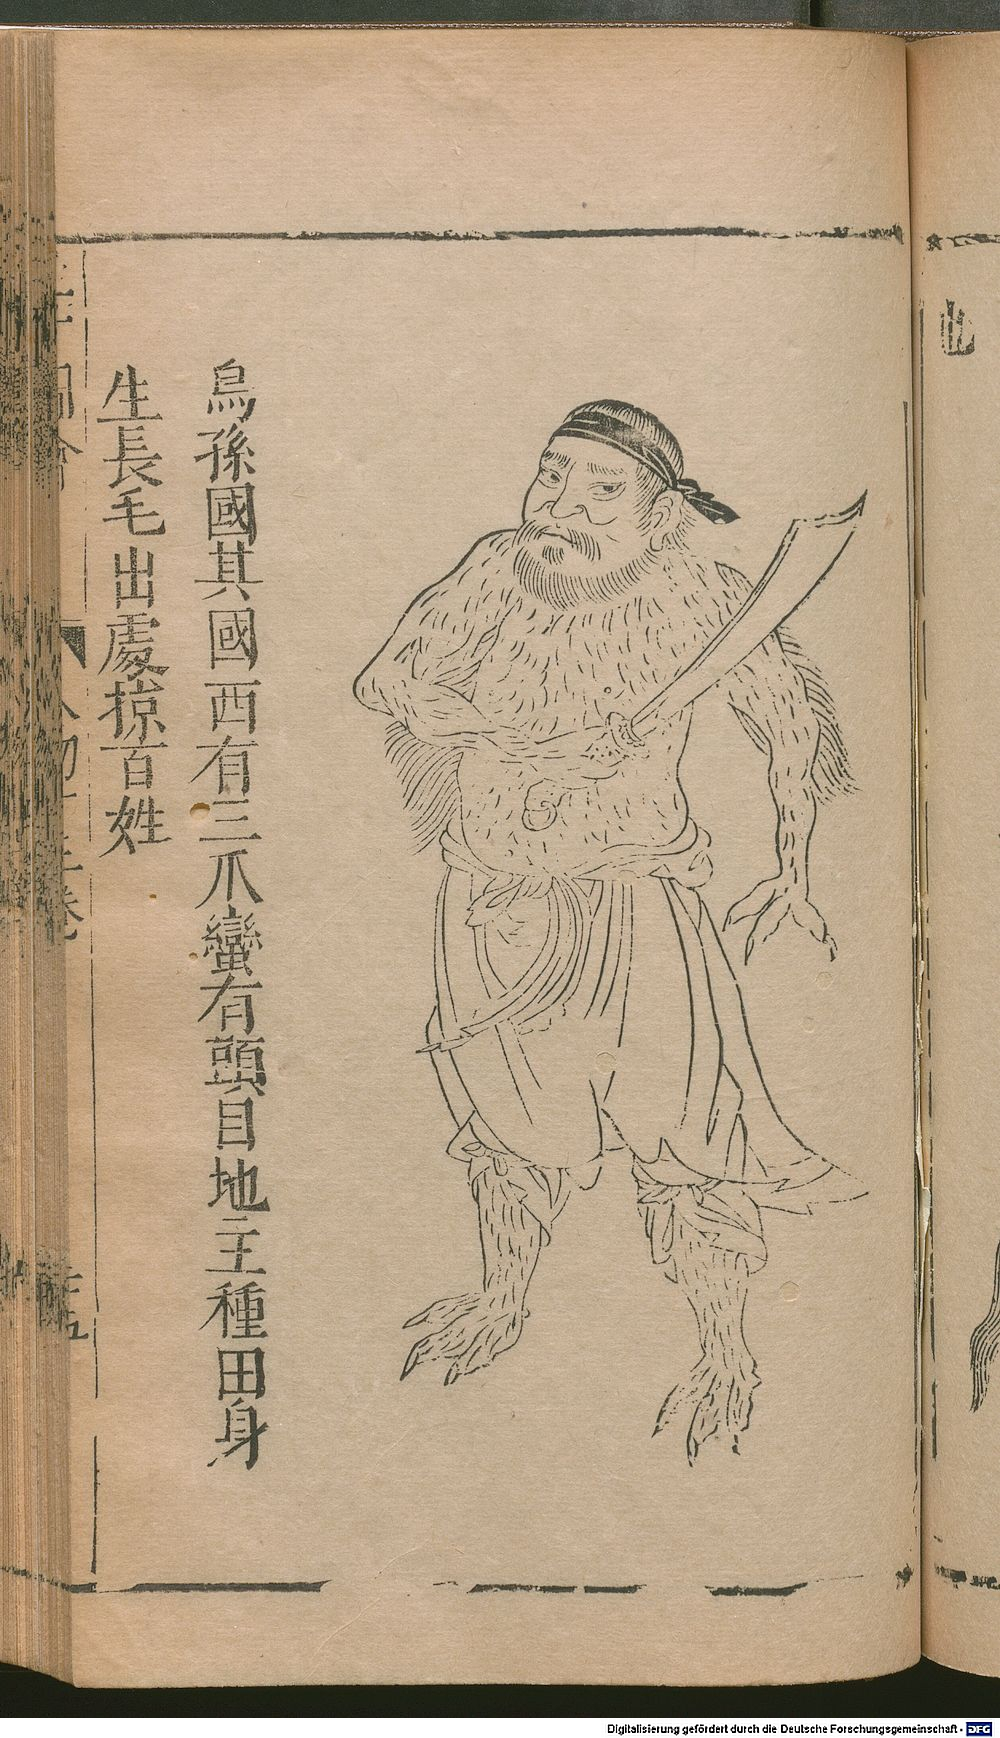 烏孫國其國西有三爪蠻有頭目地主種田身
生長毛出處掠百姓
也
Digitalisierung gefördert durch die Deutsche Forschungsgemeinschaft - DFG